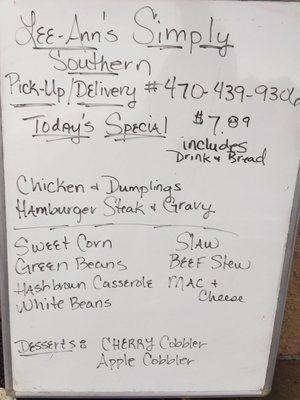 Lee-Ann's Simply
Southern
Pick-Up/Delivery # 470-439-9306
Today's Special $7.89
includes
Drink & Bread
Chicken & Dumplings
Hamburger Steak & Gravy
Sweet Corn Slaw
Green Beans Beef Stew
Hashbrown Casserole Mac &
Cheese
White Beans
Desserts: Cherry Cobbler
Apple Cobbler